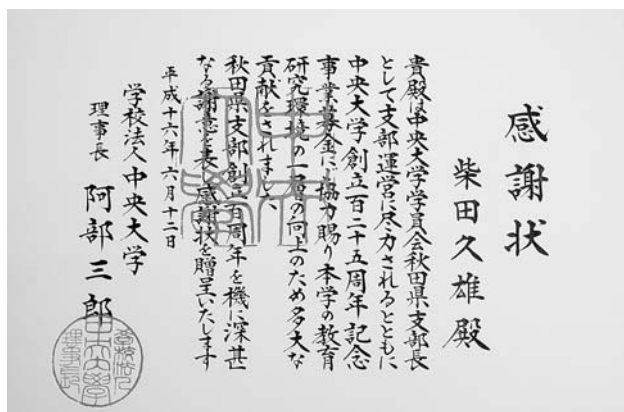 感謝状
柴田久雄殿
貴殿は中央大学学員会秋田県支部長
として支部運営に尽力されるとともに
中央大学創立百二十五周年記念
事業募金にご協力賜り本学の教育
研究環境の一層の向上のため多大な
貢献をされました
秋田県支部創立百周年を機に深甚
なる謝意を表し感謝状を贈呈いたします
平成十六年六月十二日
学校法人中央大学
理事長 阿部三郎